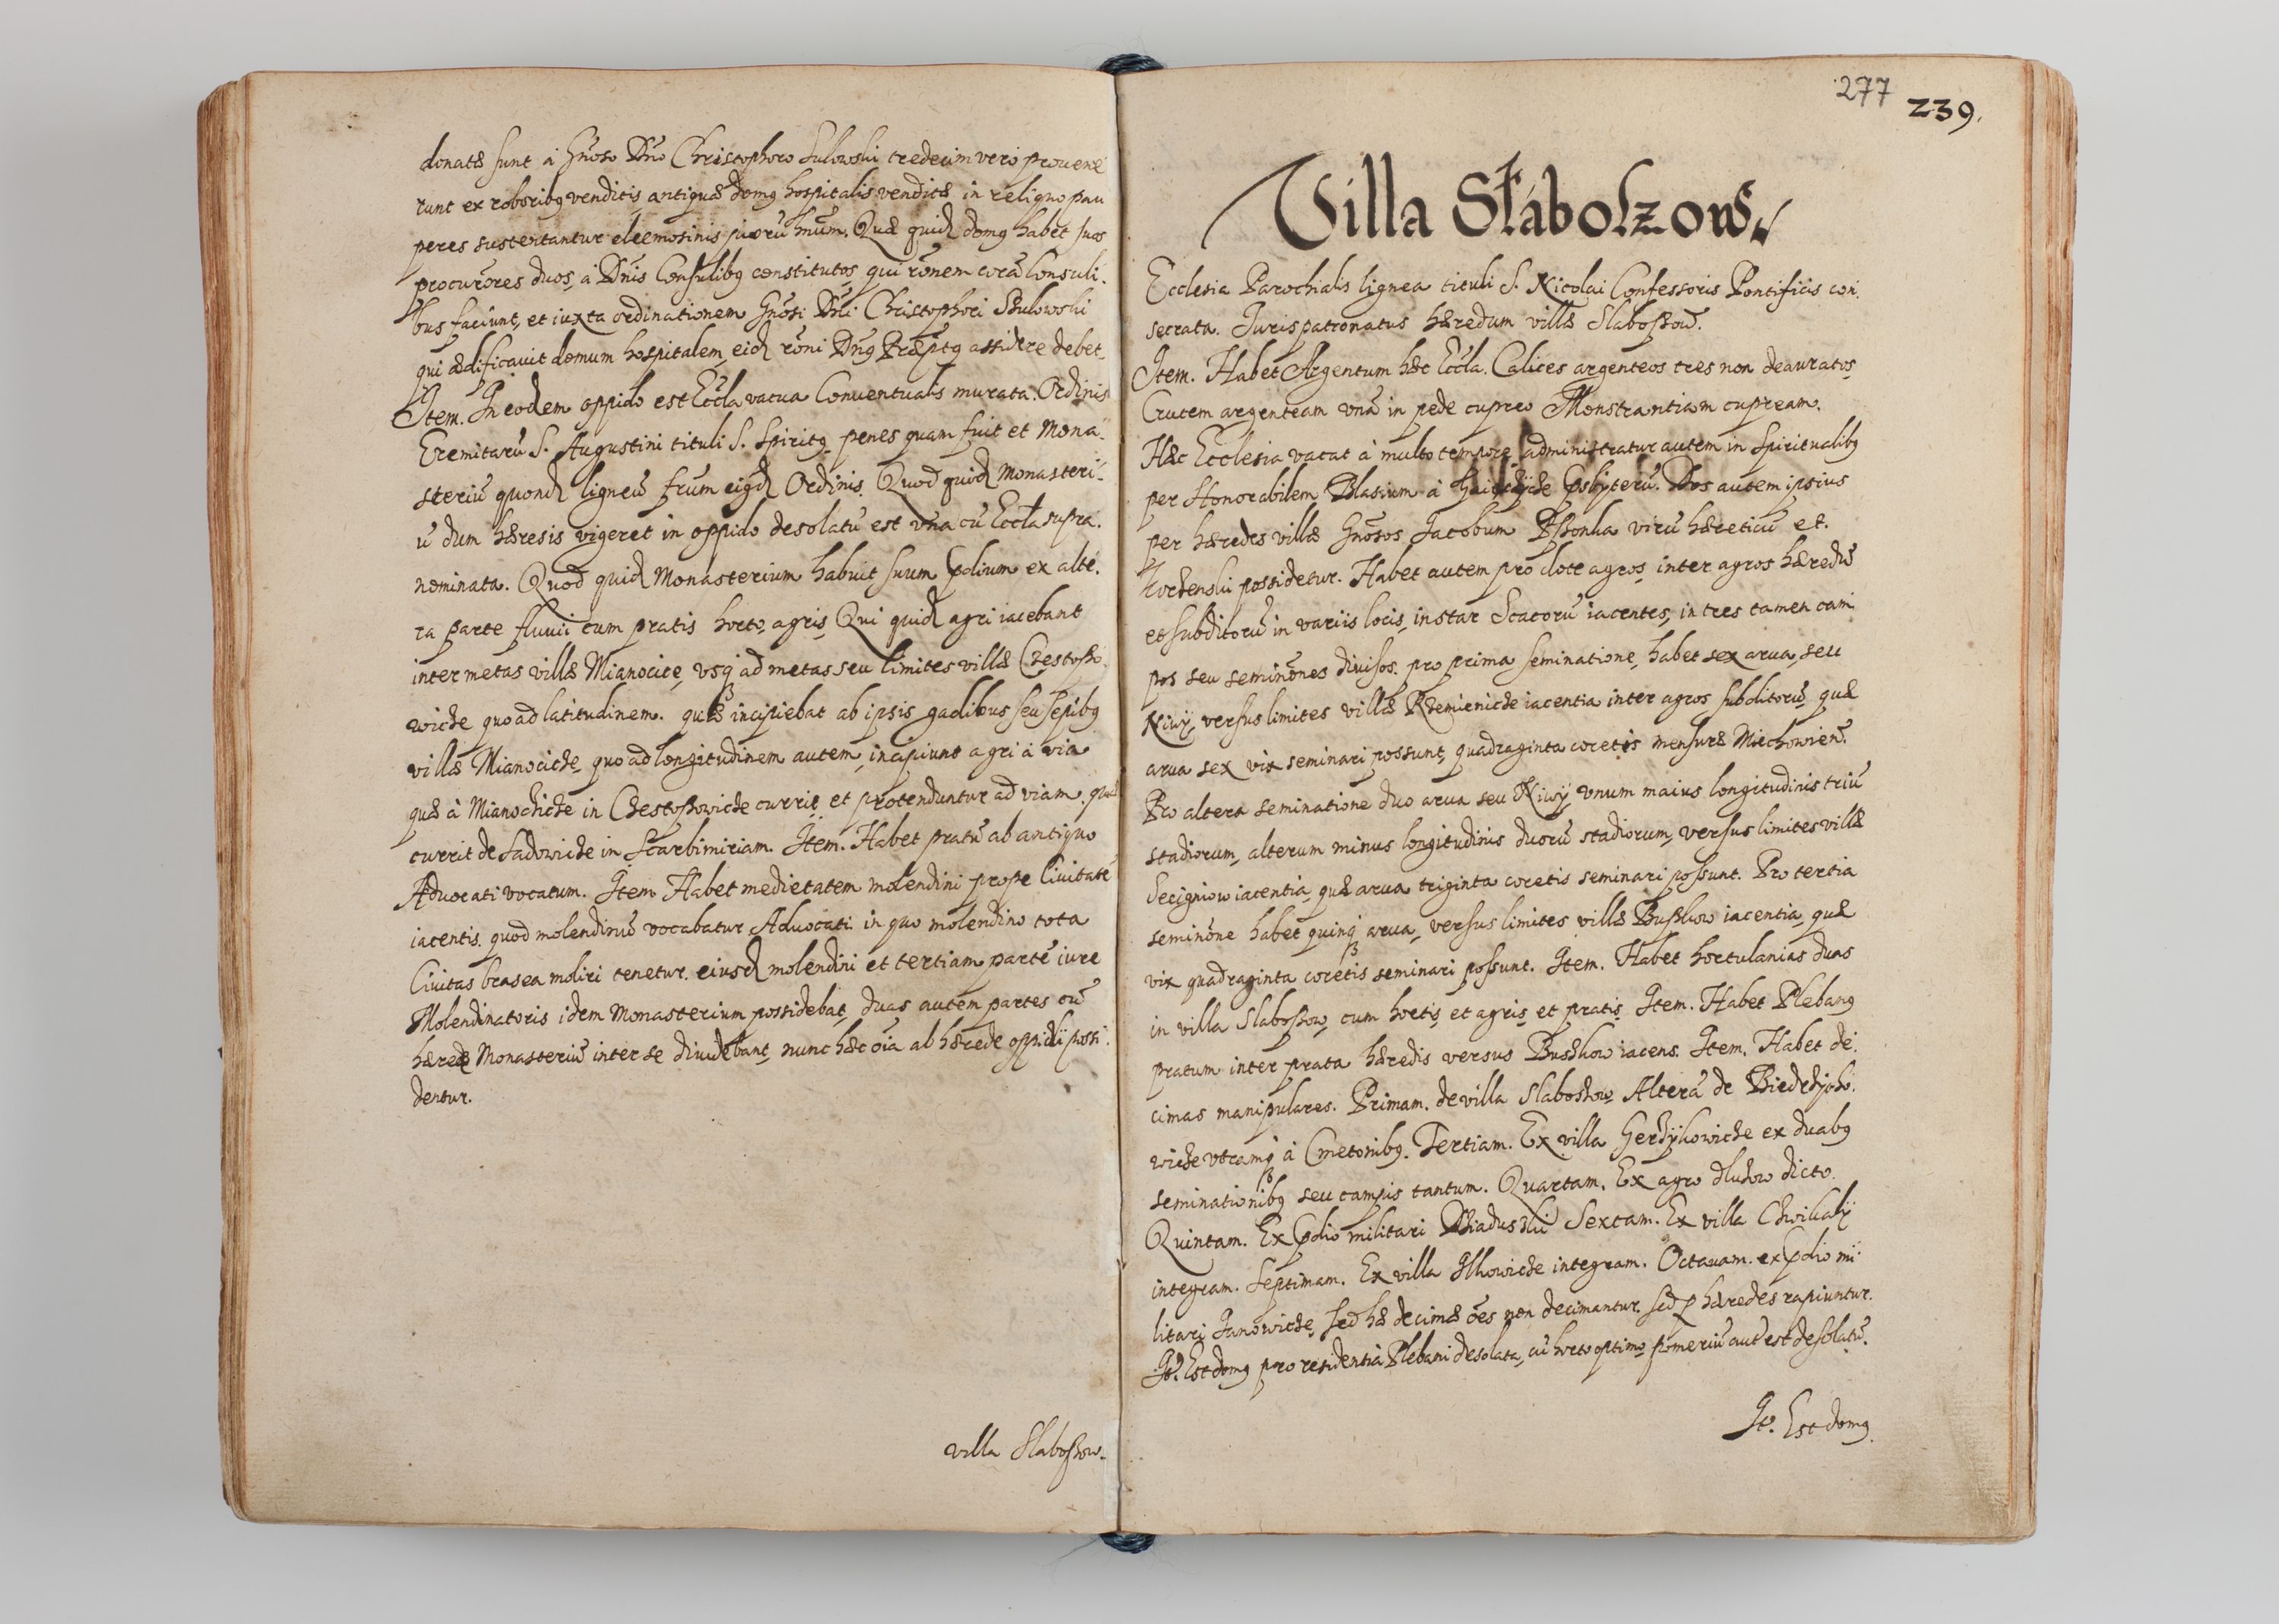 donatæ sunt à Gnoso Dno Christophoro Sulowski tredecim vero prouene
runt ex roboribq venditis antiquæ domq hospitalis venditæ in reliquo pau
peres sustentantur eleemosinis piorū hnum. Quæ quid domq habet suos
procurōres duos, a Dnis Consulibq constitutos, qui rōnem corā Consuli.
bus faciunt, et iuxta ordinationem Gnosi Dni Christophori Sulowski
qui ædificauit domum hospitalem, eid rōni Dnq Præptq assidere debet.
Item. In eodem oppido est Eccla vacua Conuentualis murata. Ordinis
Eremitarū S. Augustini tituli S. Spiritq penes quam fuit et Mona
steriū quond ligneū frum eiqd Ordinis. Quod quid Monasteri
ū dum hæresis vigeret in oppido desolatū est vna cū Eccla supra.
nominata. Quod quid Monasterium habuit suum pdium ex alte.
ra parte fluuii cum pratis horto, agris, Qui quid agri iacebant
inter metas villæ Mianocice, vsq ad metas seu limites villæ Chestoßo
wicze quo ad latitudinem. quæ incipiebat ab ipsis gadibus seu sepibq
villæ Mianocicze, quo ad longitudinem autem, incipiunt agri à via
quæ à Mianocicze in Chestoßowicze currit, et protenduntur ad viam. quæ
currit de Sadowicze in Scarbimiriam. Item. Habet pratū ab antiquo
Aduocati vocatum. Item Habet medietatem molendini prope Ciuitatē
iacentis. quod molendinū vocabatur Aduocati in quo molendino tota
Ciuitas brasea moliri tenetur. eiusd molendini et tertiam partē iure
Molendinatoris idem Monasterium possidebat, duas autem partes cū
hærede Monasteriū inter se diuidebant, nunc hæc oia ab hærede oppidi possi.
dentur.
villa Slaboßow.
277
239.
Villa Słabolzow
Ecclesia Parochialis lignea tituli S. Nicolai Confessoris Pontificis con
secrata. Jurispatronatus hæredum villæ Slaboßow.
Item. Habet Argentum hæc Eccla. Calices argenteos tres non deauratos
Crucem argenteam vnā in pede cupreo Monstrantiam cupream.
Hæc Ecclesia vacat à multo tempore, administratur autem in Spiritualibq
per Honorabilem Blasium à psbyterū. Dos autem ipsius
per hæredes villæ Gnosos Jacobum virū hæreticū et.
possidetur. Habet autem pro dote agros, inter agros hæredū
et subditorū in variis locis, instar Scacorū iacentes, in tres tamen cam
pos seu seminōnes diuisos. pro prima seminatione, habet sex arua, seu
Niwÿ, versus limites villæ Rzemienicze iacentia inter agros subditorū, quæ
arua sex vix seminari possunt, quadraginta coretis mensuræ Miechowien.
Pro altera seminatione duo arua seu Niwÿ, vnum maius longitudinis triū
stadiorum, alterum minus longitudinis duorū stadiorum, versus limites villæ
Secigniow iacentia, quæ arua triginta coretis seminari possunt. Pro tertia
seminōne habet quinq arua, versus limites villæ Bußkow iacentia, quæ
vix quadraginta coretis seminari possunt. Item. Habet hortulanias duas
in villa Slaboßow, cum hortis, et agris, et pratis. Item. Habet Plebanq
pratum inter prata hæredis versus Buszkow iacens. Item. Habet de.
cimas manipulares. Primam. de villa Slaboszow Alterā de Biedrzÿcho.
wicze vtramq à Cmetonibq. Tertiam. Ex villa Gerzÿkowicze ex duabq
seminationibq seu campis tantum. Quartam. Ex agro dluzow dicto.
Quintam. Ex pdio militari Sextam. Ex villa Chwikalÿ
integram. Septimam. Ex villa Ilkowicze integram. Octauam. ex pdio mi
litari Janowicze, sed hæ decimæ oēs non decimantur, sed p hæredes rapiuntur.
It. Est domq pro residentia Plebani desolata, cū horto optimo, pomeriū aut est desolatū.
It. Est domq.